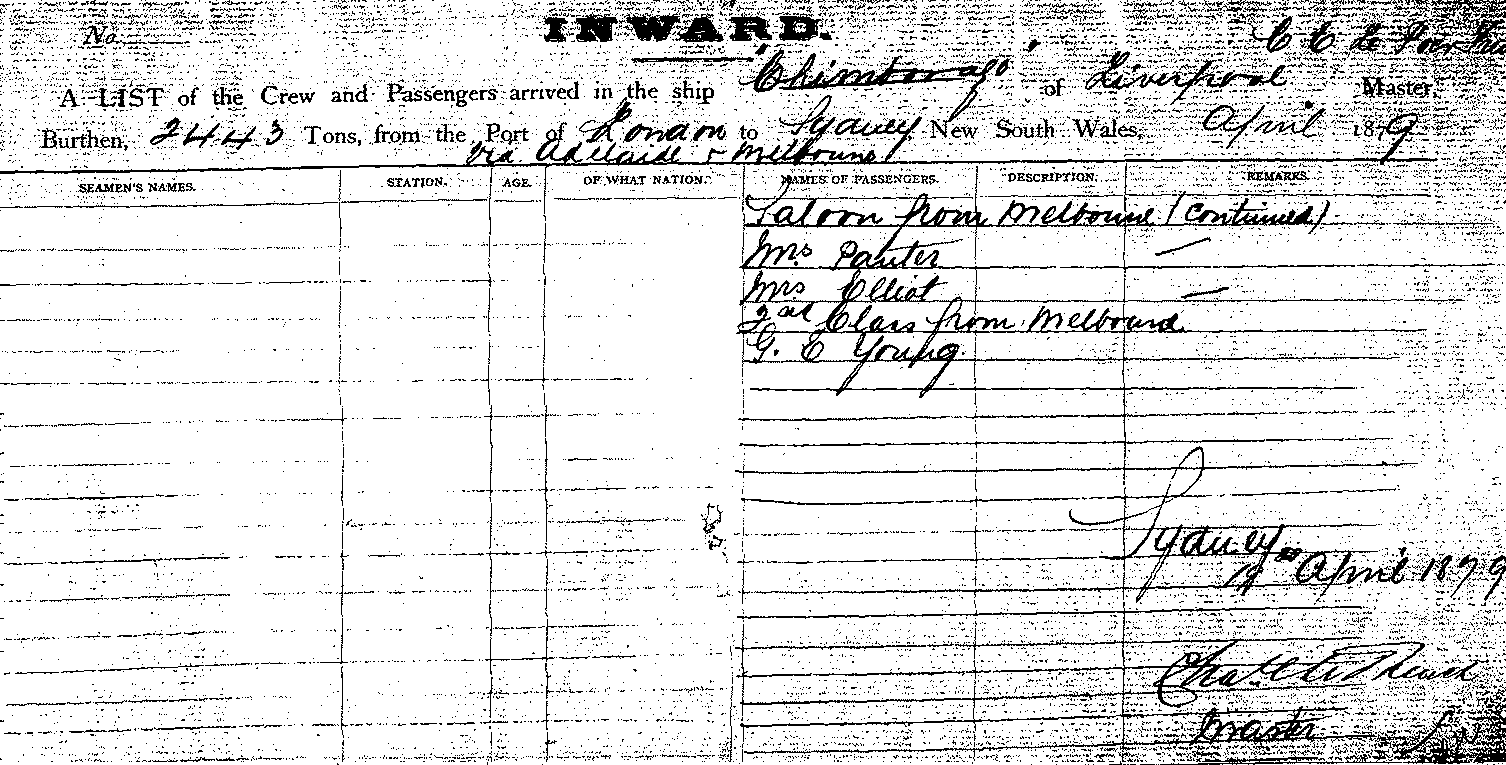 No.
INWARD.
C E de Poer
A LIST of the Crew and Passengers arrived in the ship "Chimborazo" of Liverpool Master,
Burthen, 2443 Tons, from the Port of London to Sydney New South Wales, April 1879
via Adelaide & Melbourne
SEAMEN'S NAMES. STATION. AGE. OF WHAT NATION. NAMES OF PASSENGERS. DESCRIPTION. REMARKS.
Saloon from Melbourne (Continued)
Mrs Panter —
Mrs Elliot —
2nd Class from Melbourne
G. E Young
Sydney
April 1879
Master